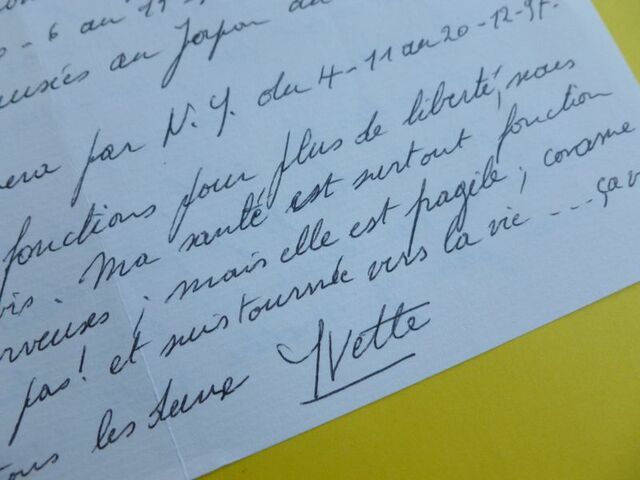 - 6 au 19-
au Japon au
par N.Y. du 4-11 au 20-12-97.
fonctions pour plus de liberté, nous
Ma santé est surtout fonction
; mais elle est fragile ; comme
pas ! et suis tournée vers la vie ... ça v
tous les deux Yvette